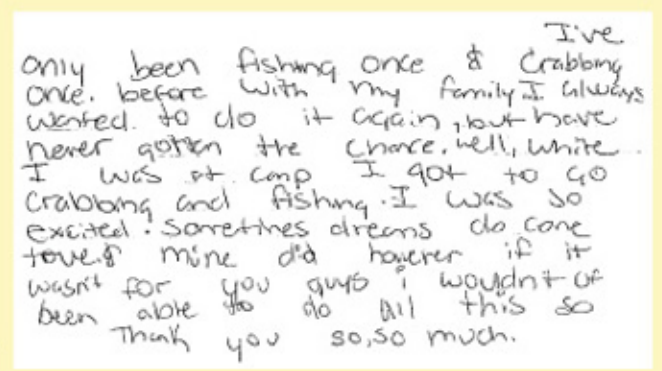 I've
only been fishing once & Crabbing
once. before with my family I always
wanted to do it again, but have
never gotten the chance. well, white
I was at camp I got to go
Crabbing and fishing. I was so
excited. Sometimes dreams do come
true & mine did however if it
wasn't for you guys i wouldn't of
been able to do all this so
Thank you so, so much.